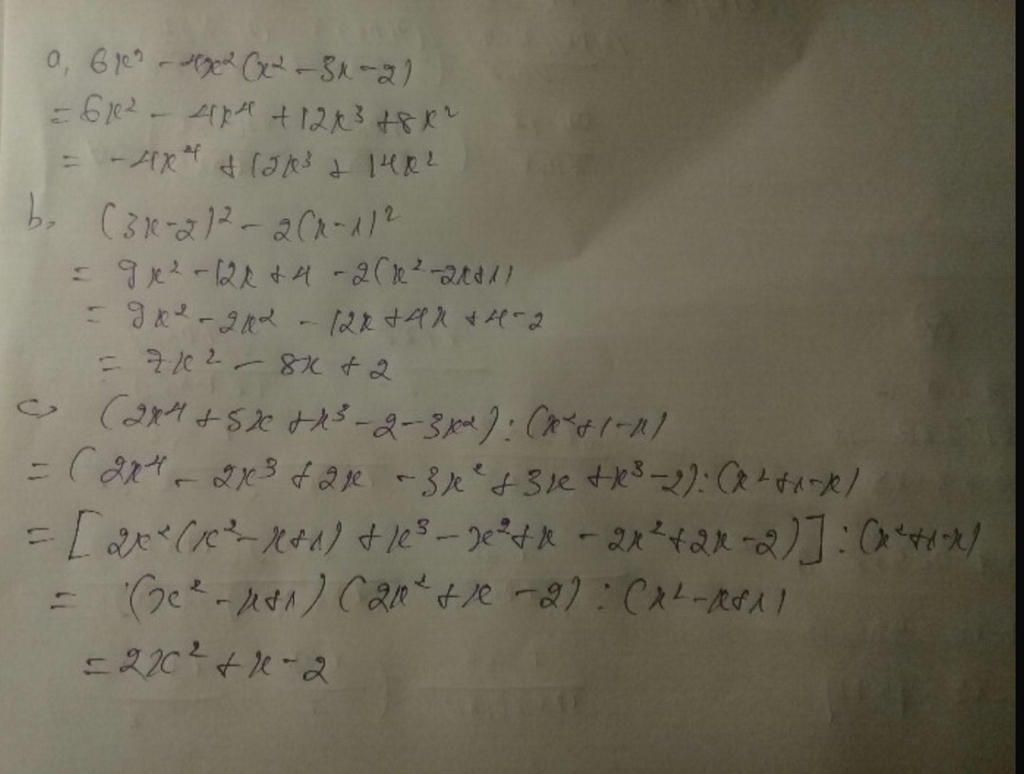 a, 6x² - 4x² (x² - 3x - 2)
= 6x² - 4x⁴ + 12x³ + 8x²
= -4x⁴ + 12x³ + 14x²
b, (3x-2)² - 2(x-1)²
= 9x² - 12x + 4 - 2(x² - 2x+1)
= 9x² - 2x² - 12x + 4x + 4 - 2
= 7x² - 8x + 2
c, (2x⁴ + 5x + x³ - 2 - 3x²) : (x² + 1 - x)
= (2x⁴ - 2x³ + 2x - 3x² + 3x + x³ - 2) : (x² + 1 - x)
= [2x² (x² - x + 1) + x³ - x² + x - 2x² + 2x - 2)] : (x² + 1 - x)
= (x² - x + 1) (2x² + x - 2) : (x² - x + 1)
= 2x² + x - 2